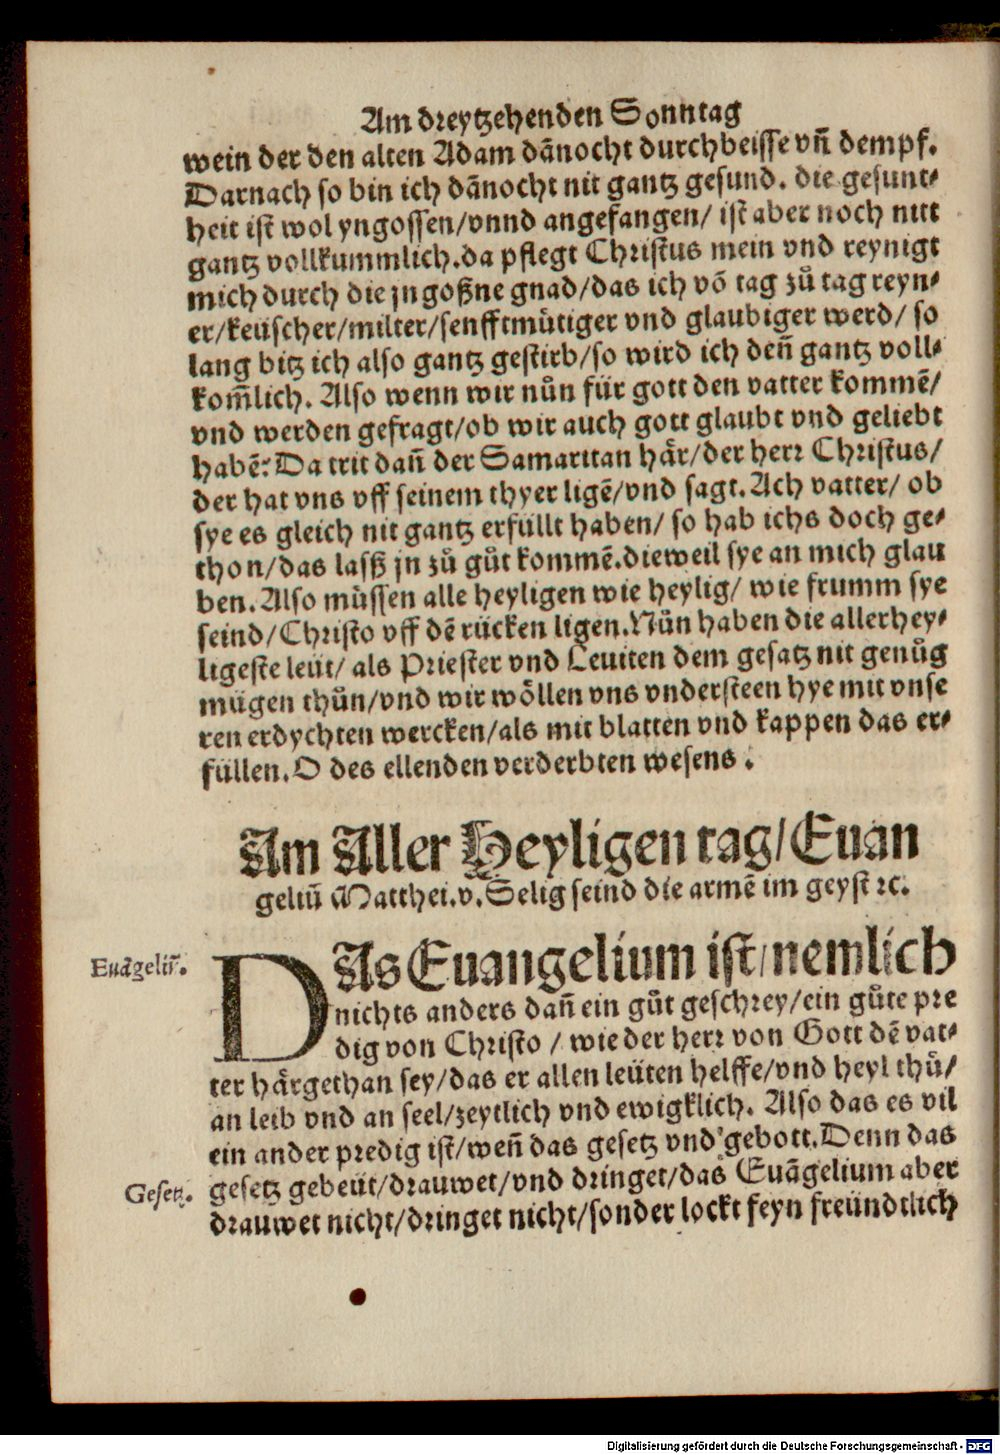 Am dreytzehenden Sonntag
wein der den alten Adam dãnocht durchbeisse vñ dempf.
Darnach so bin ich dãnocht nit gantz gesund. die gesunt-
heit ist wol yngossen/vnnd angefangen/ ist aber noch nitt
gantz vollkummlich.da pflegt Christus mein vnd reynigt
mich durch die jngoßne gnad/das ich võ tag zů tag reyn-
er/keüscher/milter/senfftmütiger vnd glaubiger werd/ so
lang bitz ich also gantz gestirb/so wird ich deñ gantz voll-
kom̃lich. Also wenn wir nůn für gott den vatter kommẽ/
vnd werden gefragt/ob wir auch gott glaubt vnd geliebt
habẽ: Da trit dañ der Samaritan här/der herr Christus/
der hat vns vff seinem thyer ligẽ/vnd sagt. Ach vatter/ ob
sye es gleich nit gantz erfüllt haben/ so hab ichs doch ge-
thon/das laſß jn zů gůt kommẽ.dieweil sye an mich glau
ben. Also müssen alle heyligen wie heylig/ wie frumm sye
seind/Christo vff dẽ rücken ligen.Nůn haben die allerhey-
ligeste leüt/ als Priester vnd Leuiten dem gesatz nit genůg
mügen thůn/vnd wir wöllen vns vndersteen hye mit vnse
ren erdychten wercken/als mit blatten vnd kappen das er-
füllen.O des ellenden verderbten wesens.
Am Aller Heyligen tag/Euan
geliũ Matthei.v. Selig seind die armẽ im geyst ꝛc.
Euãgeliũ.
DAs Euangelium ist/nemlich
nichts anders dañ ein gůt geschrey/ein gůte pre
dig von Christo / wie der herr von Gott dẽ vat-
ter härgethan sey/das er allen leüten helffe/vnd heyl thů/
an leib vnd an seel/zeytlich vnd ewigklich. Also das es vil
ein ander predig ist/weñ das gesetz vnd gebott.Denn das
Gesetz.
gesetz gebeüt/drauwet/vnd dringet/das Euãgelium aber
drauwet nicht/dringet nicht/sonder lockt feyn freündtlich
Digitalisierung gefördert durch die Deutsche Forschungsgemeinschaft - DFG